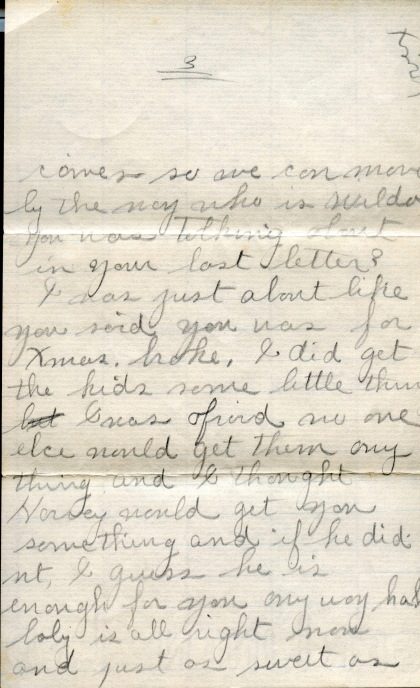 3
comes so we can move
by the way who is
you was talking about
in your last letter?
I was just about like
you said you was for
Xmas. broke, I did get
the kids some little thin
but I was afraid no one
else would get them any
thing and I thought
would get you
something and if he did
nt, I guess he is
enough for you any way ha
baby is all right now
and just as sweet as